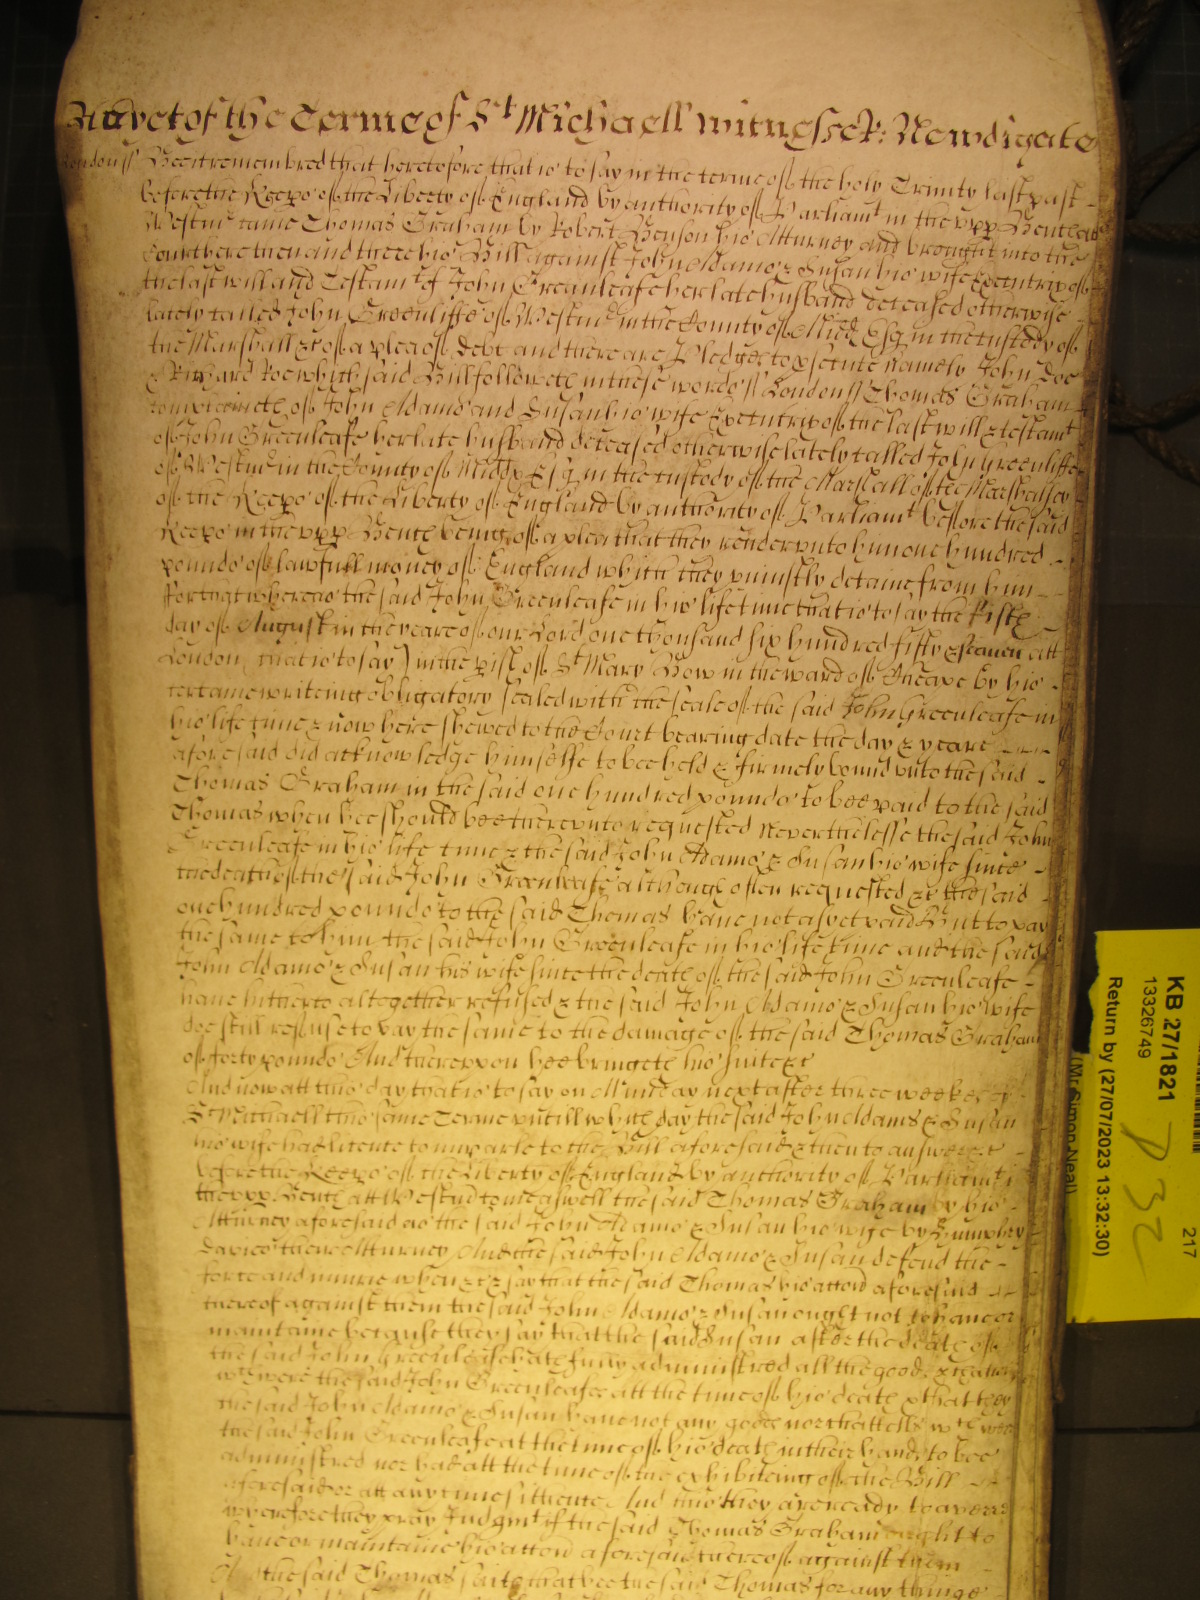 As yet of the Terme of St Michaell witnesseth: Newdigate
London ss Bee it remembred that heretofore that is to say in the terme of the holy Trinity last past
before the Keeprs of the Liberty of England by authority of Parliamt in the vpp Bench att
Westmr came Thomas Graham by Robert Benson his Atturney and brought into the
Court here then and there his Bill against John Adams & Susan his wife Executrix of
the last will and Testamt of John Greenleafe her late husband deceased otherwise
lately called John Greenliffe of Westmr in the County of Midd Esq in the custody of
the Marshall &c of a plea of Debt and there are Pledges to psecute namely John Doe
& Richard Roe which said Bill followeth in these words ss London ss Thomas Graham
complaineth of John Adams and Susan his wife Executrix of the last will & testamt
of John Greenleafe her late husband deceased otherwise lately called John Greenliffe
of Westmr in the County of Middx Esq in the custody of the Marshall of the Marshalsey
of the Keeprs of the Liberty of England by authority of Parliamt before the said
Keeprs in the vpp Bench being of a plea that they render vnto him one hundred
pounds of lawfull money of England which they vniustly detaine from him
For that whereas the said John Greenleafe in his life time that is to say the First
day of August in the yeare of our Lord one thousand six hundred fifty & seaven att
London (that is to say) in the pish of St Mary Bow in the ward of Cheape by his
certaine writeing obligatory sealed with the seale of the said John Greenleafe in
his life time & now here shewed to the Court bearing date the day & yeare
aforesaid did acknowledge himselfe to bee held & firmely bound vnto the said
Thomas Graham in the said one hundred pounds to bee paid to the said
Thomas when hee should bee therevnto requested Neverthelesse the said John
Greenleafe in his life time & the said John Adams & Susan his wife since
the death of the said John Greenleafe although often requested &c the said
one hundred pounds to the said Thomas have not as yet paid But to pay
the same to him the said John Greenleafe in his life time and the said
John Adams & Susan his wife since the death of the said John Greenleafe
have hitherto altogether refused & the said John Adams & Susan his wife
doe still refuse to pay the same to the damage of the said Thomas Graham
of forty pounds And therevpon hee bringeth his suite &c
And now att this day that is to say on Munday next after three weekes of
St Michaell this same Terme vntill which day the said John Adams & Susan
his wife had licence to imparle to the Bill aforesaid & then to answere &c
before the Keeprs of the Liberty of England by authority of Parliamt in
the vpp Bench att Westmr come aswell the said Thomas Graham by his
Atturney aforesaid as the said John Adams & Susan his wife by Humphry
Davies their Atturney And the said John Adams & Susan defend the
force and iniurie when &c & say that the said Thomas his accon aforesaid
thereof against them the said John Adams & Susan ought not to have or
maintaine because they say that the said Susan after the death of
the said John Greenleafe hath fully administred all the goods & chattells
wch were the said John Greenleafes att the time of his death & that they
the said John Adams & Susan have not any goods nor chattells wch were
the said John Greenleafe at the time of his death in their hands to bee
administred nor had att the time of the exhibiteing of the Bill
aforesaid or att any time sithence And this they are ready to averre
wherefore they pray Judgmt if the said Thomas Graham ought to
have or maintaine his accon aforesaid thereof against them
the said Thomas saith that hee the said Thomas for any thinge
KB 27/1821
13326749
Return by (27/07/2023 13:32:30)
(Mr Simon Neal)
217
D32